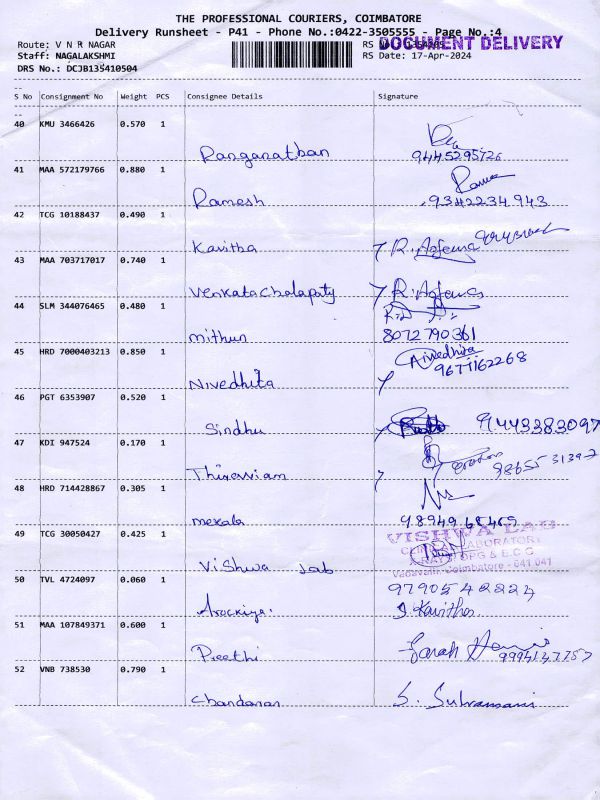 THE PROFESSIONAL COURIERS, COIMBATORE
Delivery Runsheet - P41 - Phone No.:0422-3505555 - Page No.:4
Route: V N R NAGAR
RS No.:
DOCUMENT DELIVERY
Staff: NAGALAKSHMI
RS Date: 17-Apr-2024
DRS No.: DCJB135410504
S No Consignment No Weight PCS Consignee Details Signature
40 KMU 3466426 0.570 1
Ranganathan 9445295726
41 MAA 572179766 0.880 1
Ramesh 9342234943
42 TCG 10188437 0.490 1
Kavitha R.
43 MAA 703717017 0.740 1
Venkatachalapaty R.
44 SLM 344076465 0.480 1
mithun 8072790361
45 HRD 7000403213 0.850 1
Nivedhita
9677162268
Nivedhita
46 PGT 6353907 0.520 1
Sindhu 9443383097
47 KDI 947524 0.170 1
98655 31397
48 HRD 714428867 0.305 1
mekala
49 TCG 30050427 0.425 1
VISHWA LAB
Vishwa Lab
Coimbatore - 641 041
50 TVL 4724097 0.060 1
9790542224
Arockiya. J. Kavitha
51 MAA 107849371 0.600 1
Preethi Sarah
52 VNB 738530 0.790 1
Chandaran S.